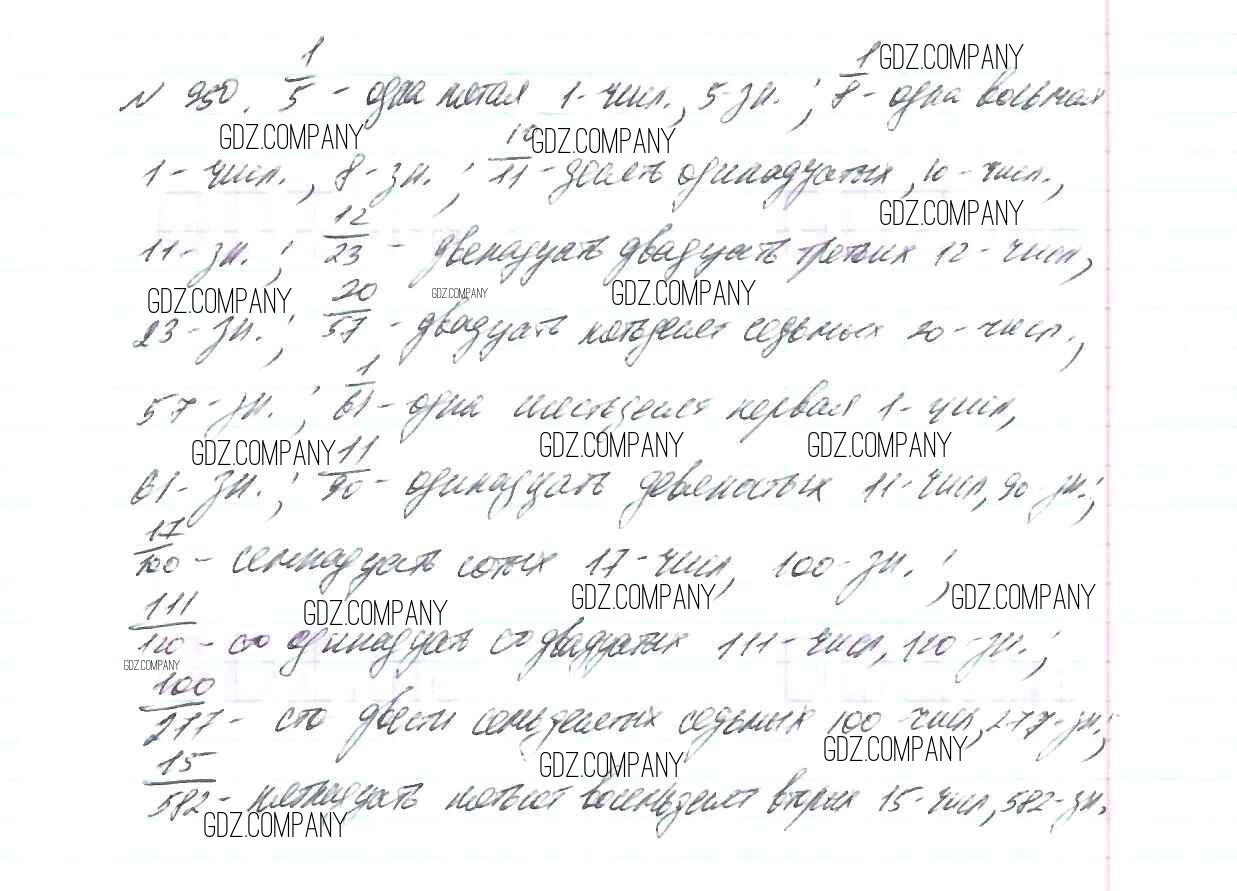 GDZ.COMPANY
N 950. 1/5 - одна пятая 1-числ., 5-зн.; 1/8 - одна восьмая
GDZ.COMPANY GDZ.COMPANY
1-числ., 8-зн.; 10/11 - десять одинадцатых, 10-числ.,
GDZ.COMPANY
11-зн.; 12/23 - двенадцать двадцать третьих 12-числ,
GDZ.COMPANY GDZ.COMPANY GDZ.COMPANY
23-зн.; 20/57 - двадцать пятьдесят седьмых 20-числ.,
57-зн.; 1/61 - одна шестьдесят первая 1-числ,
GDZ.COMPANY GDZ.COMPANY GDZ.COMPANY
61-зн.; 11/90 - одинадцать девяностых 11-числ, 90-зн.;
17/100 - семнадцать сотых 17-числ, 100-зн.;
GDZ.COMPANY GDZ.COMPANY GDZ.COMPANY
111/120 - сто одинадцать сто двадцатих 111-числ, 120-зн.;
GDZ.COMPANY
100/277 - сто двести семьдесятых седьмых 100-числ, 277-зн.;
GDZ.COMPANY GDZ.COMPANY
15/582 - пятнадцать пятьсот восемьдесят вторых 15-числ, 582-зн.
GDZ.COMPANY